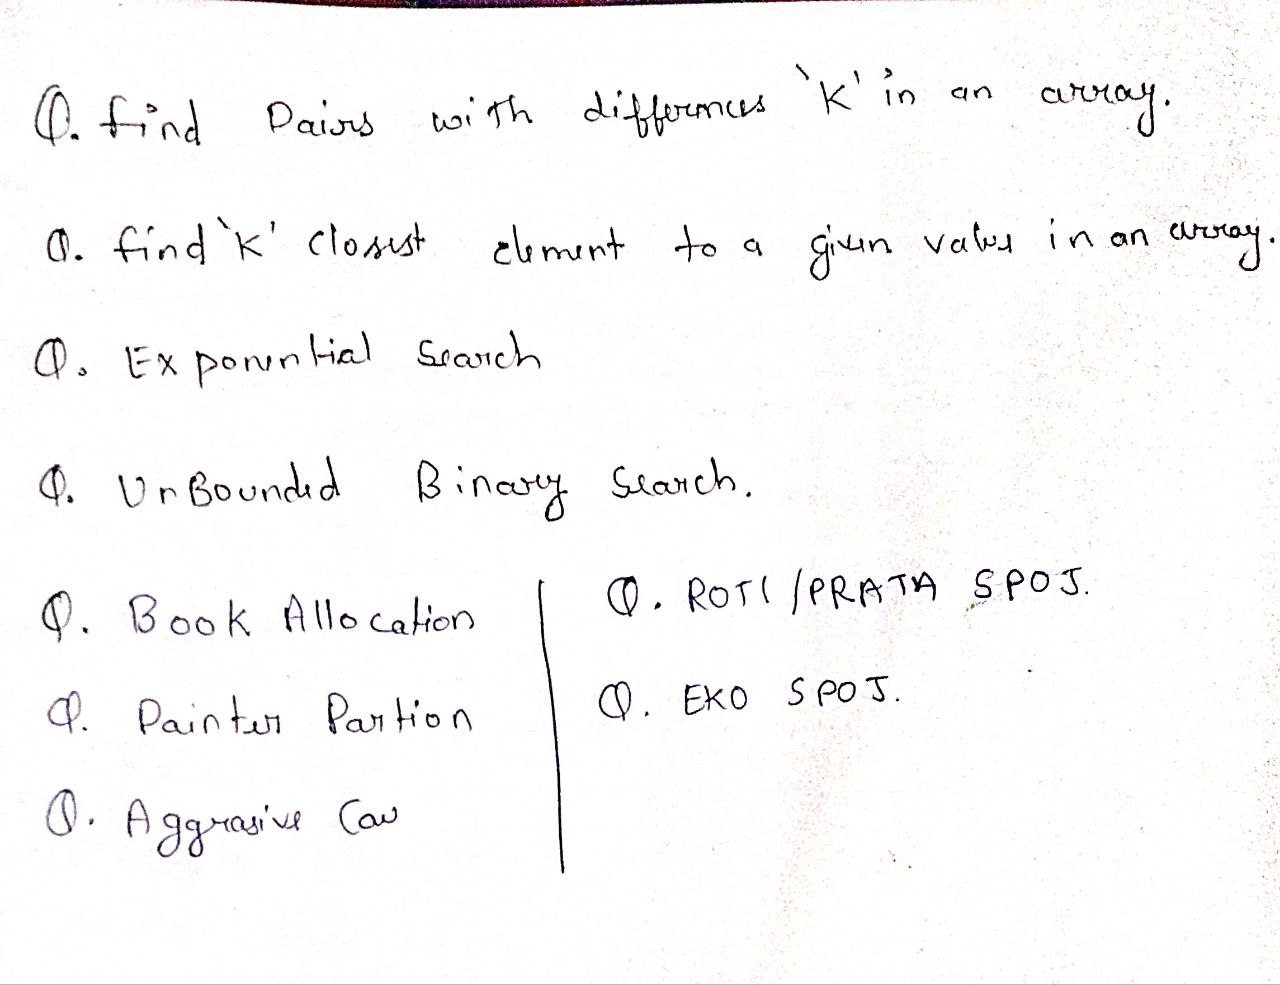 Q. find Pairs with differences 'K' in an array.
Q. find 'K' closest element to a given value in an array.
Q. Exponential Search
Q. UnBounded Binary Search.
Q. Book Allocation
Q. Painter Partion
Q. Aggrasive Cow
Q. ROTI/PRATA SPOJ.
Q. EKO SPOJ.